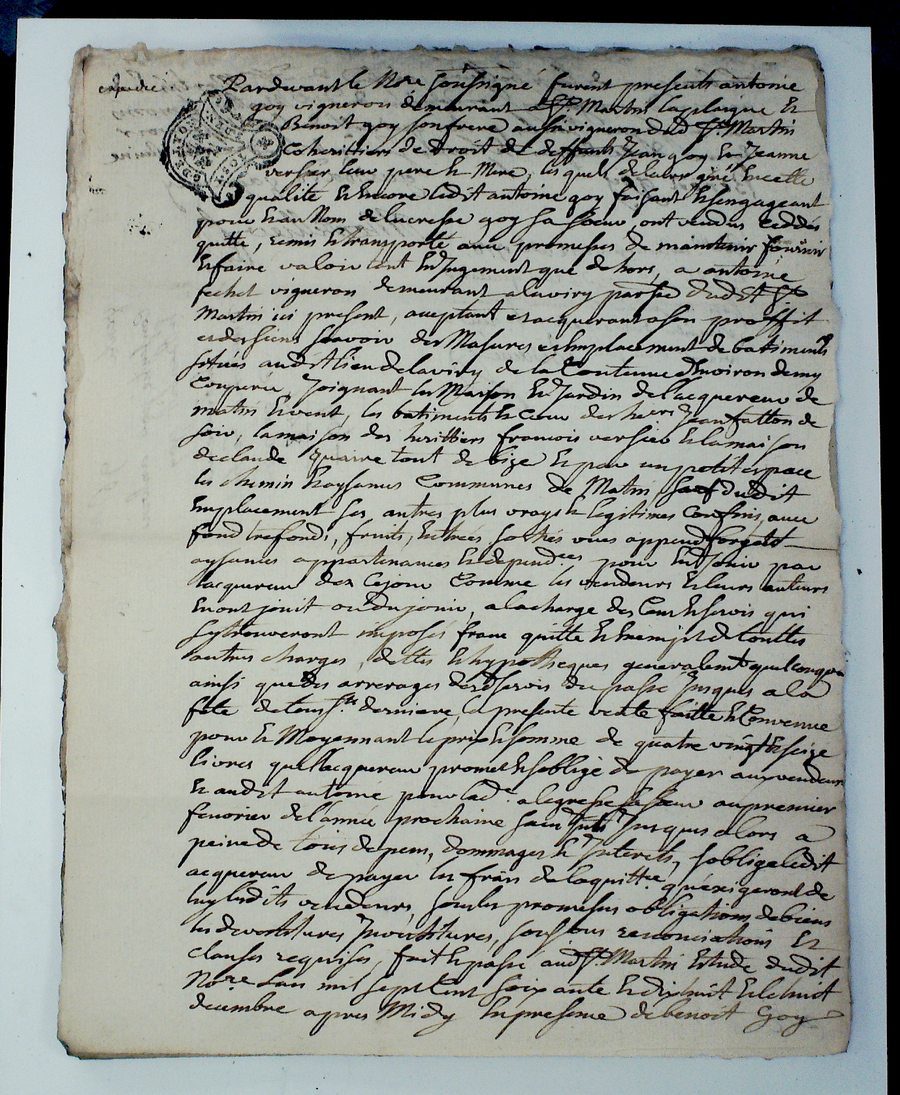 expedié
Pardevant le No.re soussigné furent presents antoine
goy vigneron demeurant St Martin la plaigne et
Benoit goy son frere aussi vigneron dud St Martin
Coheritiers de droit de deffunts Jean goy et Jeanne
versier leur pere et Mere, lesquels de leur gré en cette
qualité et Encore ledit antoine goy faisant et sengageant
pour et au Nom de lucresse goy sa soeur, ont vendus ceddés
quitte, remis et transporté aux promesses de maintenir fournir
et faire valoir tant En Jugement que dehors, a antoine
fechet vigneron demeurant a laviry parroisse dudit St
Martin ici present, acceptant et acquerant a son proffit
et des siens sçavoir des Masures et Emplacement de batiments
situés audit lieu de laviry de la Contenue d'Environ demy
Couperée Joignant les Maison et Jardin de l'acquereur de
matin et vent, les batiments et Cour des heirs Jean fatton de
soir, la maison des herittiers francois versier et la maison
de claude quaire tout de bize et par un petit espace
les chemin et aysances Communes de Matin sauf dudit
Emplacement ses autres plus vrays et legitimes Confins, avec
fond trefond, fruits, Entrées sorties vues
aysances appartenances et dependces pour En Jouir par
lacquereur des Cejour Comme les vendeurs et leurs auteurs
En ont jouit ou du jouir, a la charge des Cens et servis qui
sy trouveront imposés franc quitte et Exempt de touttes
autres charges, dettes et hypotheques generalemt quelconques
ainsi que des arrerages desd servis du passé Jusques a la
fete de touss.ts derniere, la presente vente faitte et Convenue
pour et Moyennant le prix et somme de quatre vingt et seize
livres que l'acquereur promet et soblige de payer aux vendeurs
Et audit antoine pour lad. sa soeur au premier
fevrier de l'année prochaine sans Intt Jusques alors a
peine de tous depens, dommages et Interets, soblige ledit
acquereur de payer les frais de la quitte. qu'exigeront de
luy lesdits vendeurs, sous les promesses obligations de biens
les devestitures Investitures, sous tous renonciations Et
clauses requises, fait et passé aud St Martin Etude dudit
No.re L'an mil sept Cent soixante et dixhuit et le huit
decembre apres Midy En presence de benoit Goy